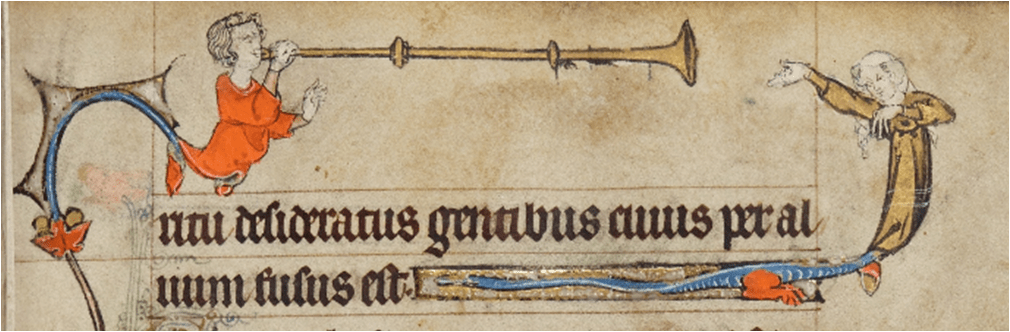 ritu desideratus gentibus cuius per al
uum fusus est.